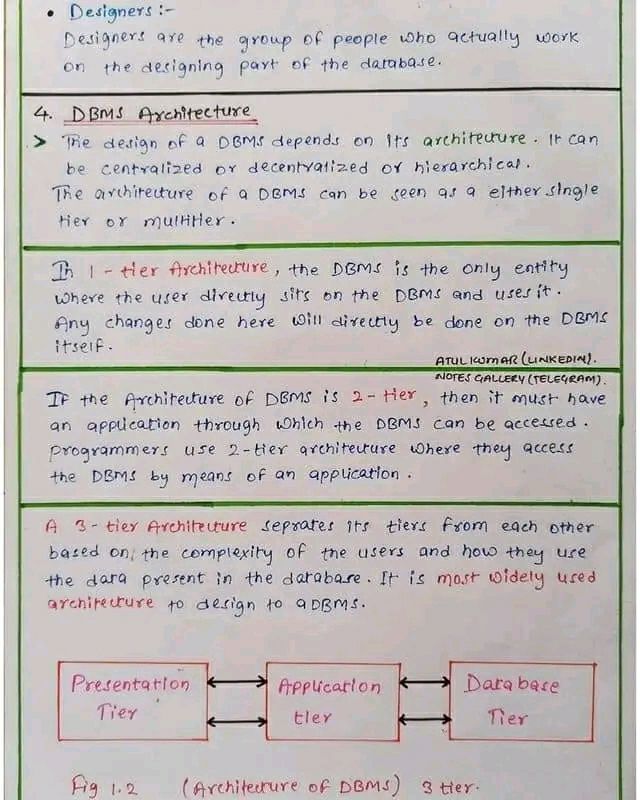 • Designers :-
Designers are the group of people who actually work
on the designing part of the database.
4. DBMS Architecture
> The design of a DBMS depends on its architecture. It can
be centralized or decentralized or hierarchical.
The architecture of a DBMS can be seen as a either single
tier or multitier.
In 1-tier Architecture, the DBMS is the only entity
where the user directly sits on the DBMS and uses it.
Any changes done here will directly be done on the DBMS
itself.
ATUL KUMAR (LINKEDIN).
NOTES GALLERY (TELEGRAM).
If the Architecture of DBMS is 2-tier, then it must have
an application through which the DBMS can be accessed.
programmers use 2-tier architecture where they access
the DBMS by means of an application.
A 3-tier Architecture seprates its tiers from each other
based on the complexity of the users and how they use
the data present in the database. It is most widely used
architecture to design to a DBMS.
Presentation Application Database
Tier tier Tier
Fig 1.2 (Architecture of DBMS) 3 tier.